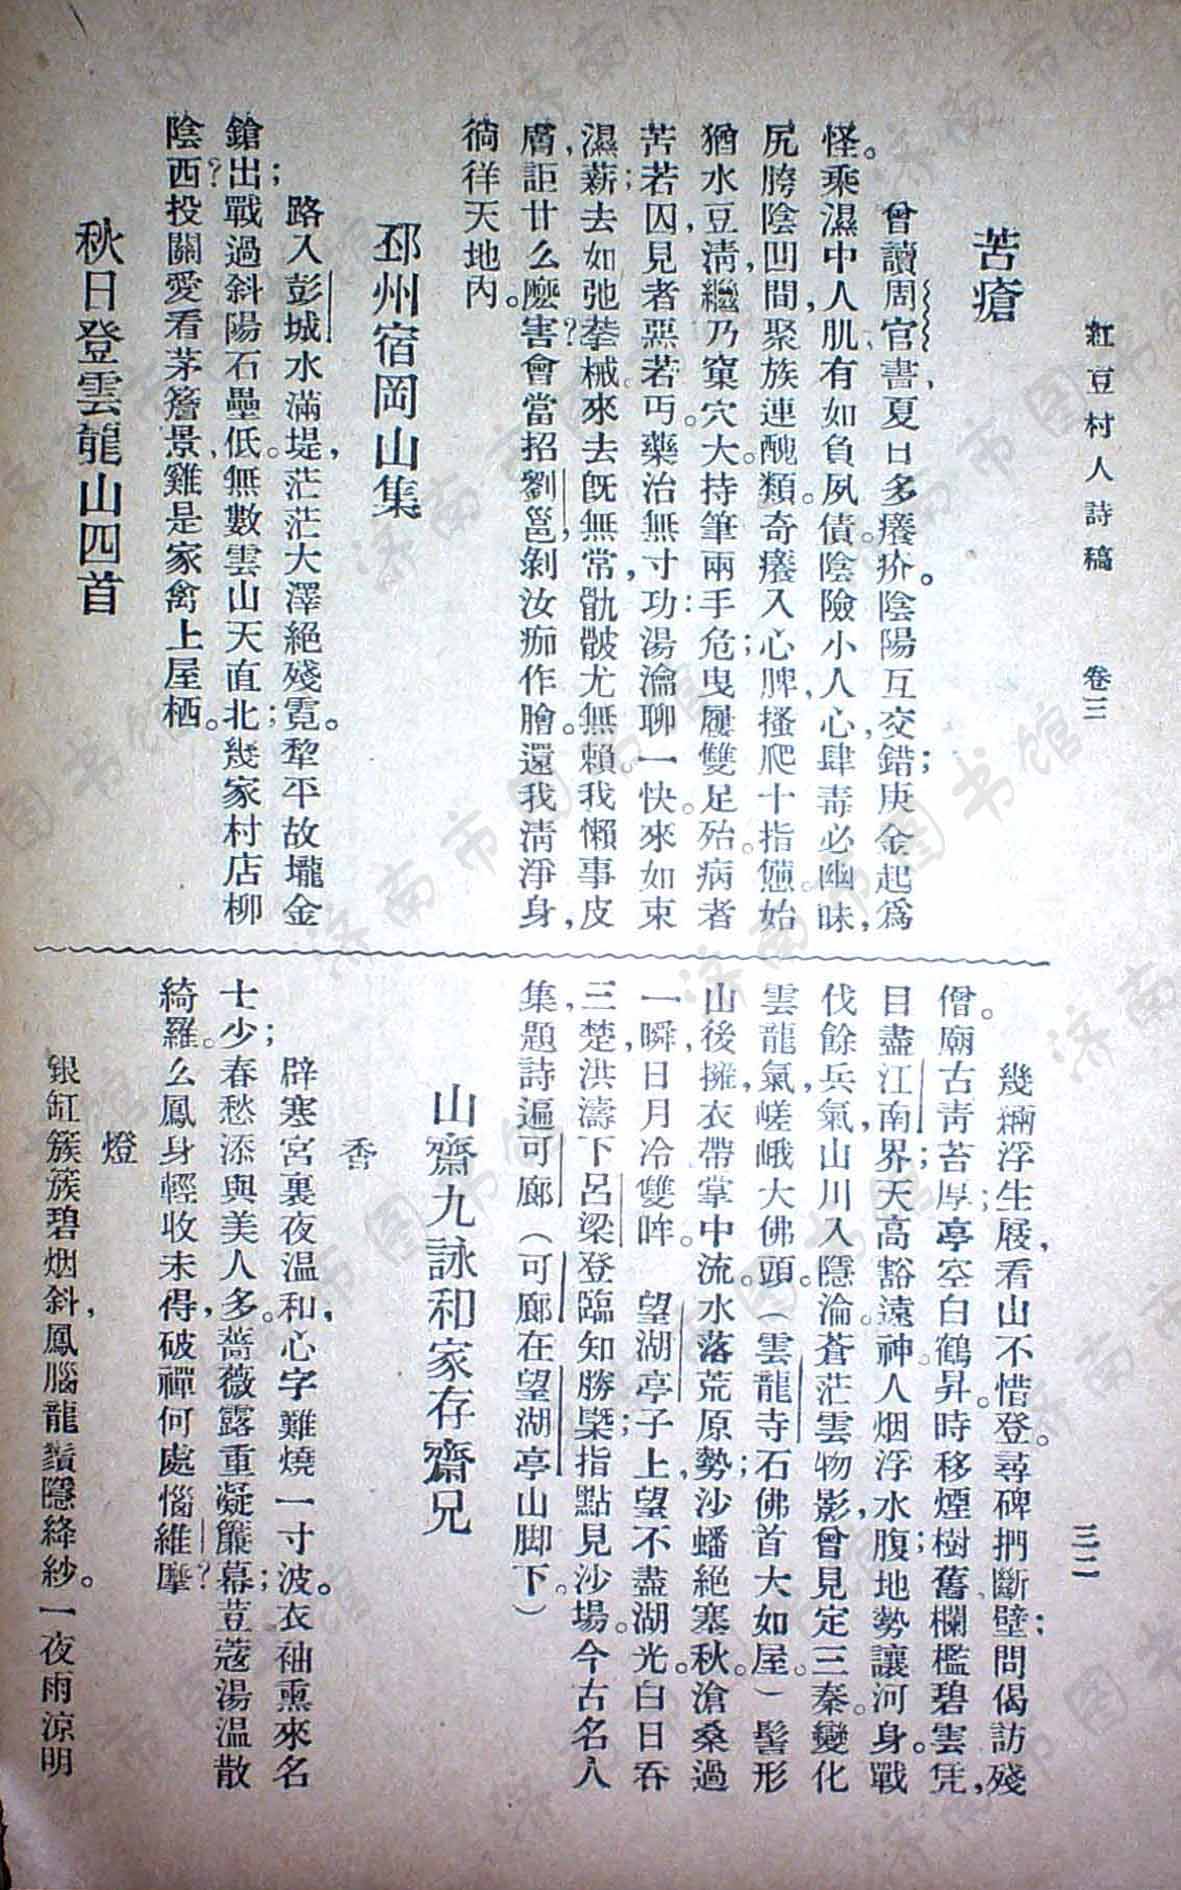 紅豆村人詩稿　卷三　三二
苦瘡
曾讀周官書，夏日多癢疥。陰陽互交錯；庚金起爲
怪。乘濕中人肌，有如負夙債。陰險小人心，肆毒必幽昧，
尻胯陰凹間，聚族連醜類。奇癢入心脾；搔爬十指憊。始
猶水豆清，繼乃窠穴大。持筆兩手危，曳履雙足殆。病者
苦若囚，見者惡若丐。藥治無寸功：湯瀹聊一快。來如束
濕薪；去如弛拲械。來去旣無常，骫骳尤無賴。我懶事皮
膚，詎甘么麼害？會當招劉邕，剝汝痂作膾。還我清淨身，
徜徉天地內。
邳州宿岡山集
路入彭城水滿堤，茫茫大澤絕殘霓。犂平故壠金
鎗出；戰過斜陽石壘低。無數雲山天直北；幾家村店柳
陰西？投關愛看茅簷景，雞是家禽上屋栖。
秋日登雲龍山四首
幾緉浮生屐，看山不惜登。尋碑捫斷壁；問偈訪殘
僧。廟古青苔厚；亭空白鶴昇。時移煙樹舊，欄檻碧雲凭，
目盡江南界，天高豁遠神。人烟浮水腹；地勢讓河身。戰
伐餘兵氣，山川入隱淪。蒼茫雲物影，曾見定三秦。變化
雲龍氣，嵯峨大佛頭。（雲龍寺石佛首大如屋。）髻形
山後擁，衣帶掌中流。水落荒原勢；沙蟠絕塞秋。滄桑過
一瞬，日月冷雙眸。　望湖亭子上，望不盡湖光。白日吞
三楚，洪濤下呂梁。登臨知勝槩；指點見沙場。今古名人
集，題詩遍可廊（可廊在望湖亭山脚下。）
山齋九詠和家存齋兄
香
辟寒宮裏夜温和，心字難燒一寸波。衣袖熏來名
士少；春愁添與美人多。薔薇露重凝簾幕；荳蔻湯温散
綺羅。么鳳身輕收未得，破禪何處惱維摩？
燈
銀缸簇簇碧烟斜，鳳腦龍鬚隱絳紗。一夜雨涼明